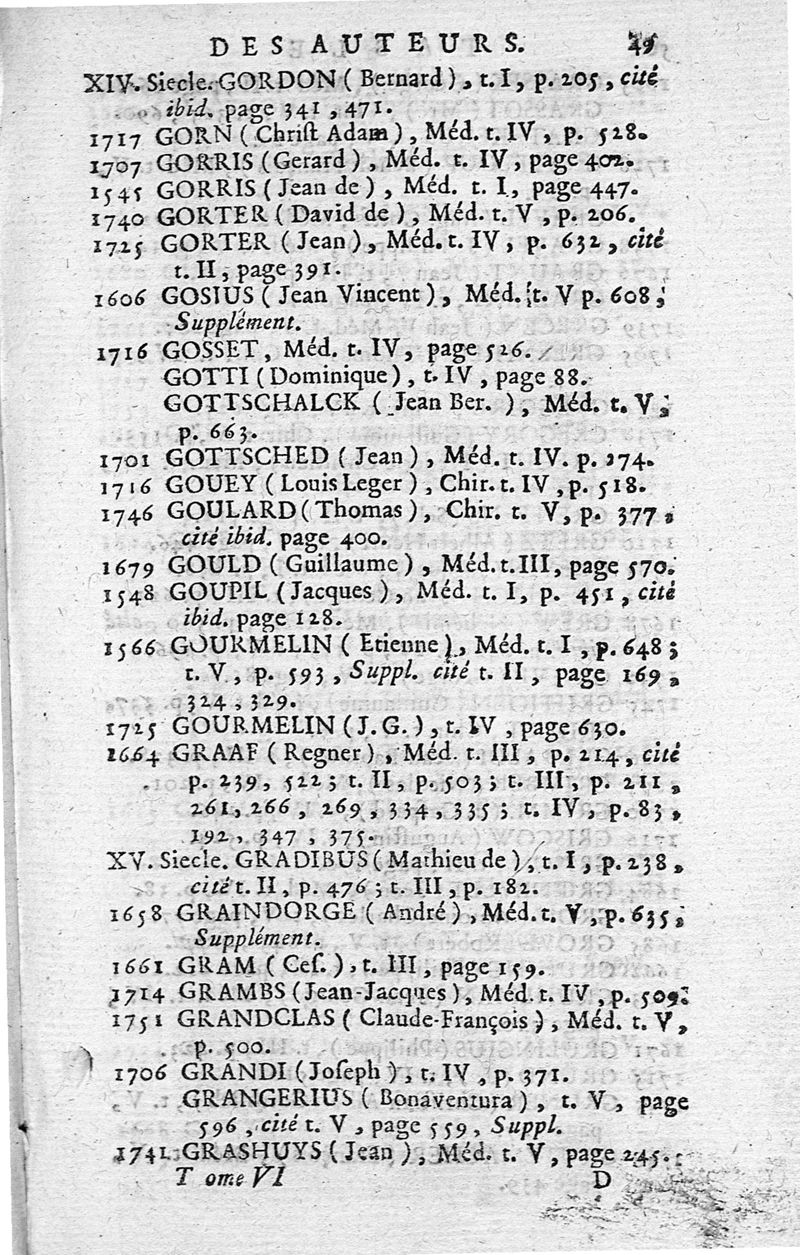 DES AUTEURS. 49
XIV. Siecle. GORDON ( Bernard ), t. I, p. 205, cité
ibid. page 341, 471.
1717 GORN ( Chriſt Adam ), Méd. t. IV, p. 528.
1707 GORRIS (Gerard ), Méd. t. IV, page 402.
1545 GORRIS ( Jean de ), Méd. t. I, page 447.
1740 GORTER ( David de ), Méd. t. V, p. 206.
1725 GORTER ( Jean ), Méd. t. IV, p. 632, cité
t. II, page 391.
1606 GOSIUS ( Jean Vincent ), Méd. t. V p. 608;
Supplément.
1716 GOSSET, Méd. t. IV, page 526.
GOTTI ( Dominique ), t. IV, page 88.
GOTTSCHALCK ( Jean Ber. ), Méd. t. V,
p. 663.
1701 GOTTSCHED ( Jean ), Méd. t. IV. p. 274.
1716 GOUEY ( Louis Leger ), Chir. t. IV, p. 518.
1746 GOULARD ( Thomas ), Chir. t. V, p. 377,
cité ibid. page 400.
1679 GOULD ( Guillaume ), Méd. t. III, page 570.
1548 GOUPIL ( Jacques ), Méd. t. I, p. 451, cité
ibid. page 128.
1566 GOURMELIN ( Etienne ), Méd. t. I, p. 648;
t. V, p. 593, Suppl. cité t. II, page 169,
324, 329.
1725 GOURMELIN ( J. G. ), t. IV, page 630.
1664 GRAAF ( Regner ), Méd. t. III, p. 214, cité
p. 239, 522; t. II, p. 503; t. III, p. 211,
261, 266, 269, 334, 335; t. IV, p. 83,
192, 347, 375.
XV. Siecle. GRADIBUS ( Mathieu de ), t. I, p. 238,
cité t. II, p. 476; t. III, p. 182.
1658 GRAINDORGE ( André ), Méd. t. V, p. 635;
Supplément.
1661 GRAM ( Ceſ. ), t. III, page 159.
1714 GRAMBS ( Jean-Jacques ), Méd. t. IV, p. 509.
1751 GRANDCLAS ( Claude-François ), Méd. t. V,
p. 500.
1706 GRANDI ( Joſeph ), t. IV, p. 371.
GRANGERIUS ( Bonaventura ), t. V, page
596, cité t. V, page 559, Suppl.
1741 GRASHUYS ( Jean ), Méd. t. V, page 245.
Tome VI D